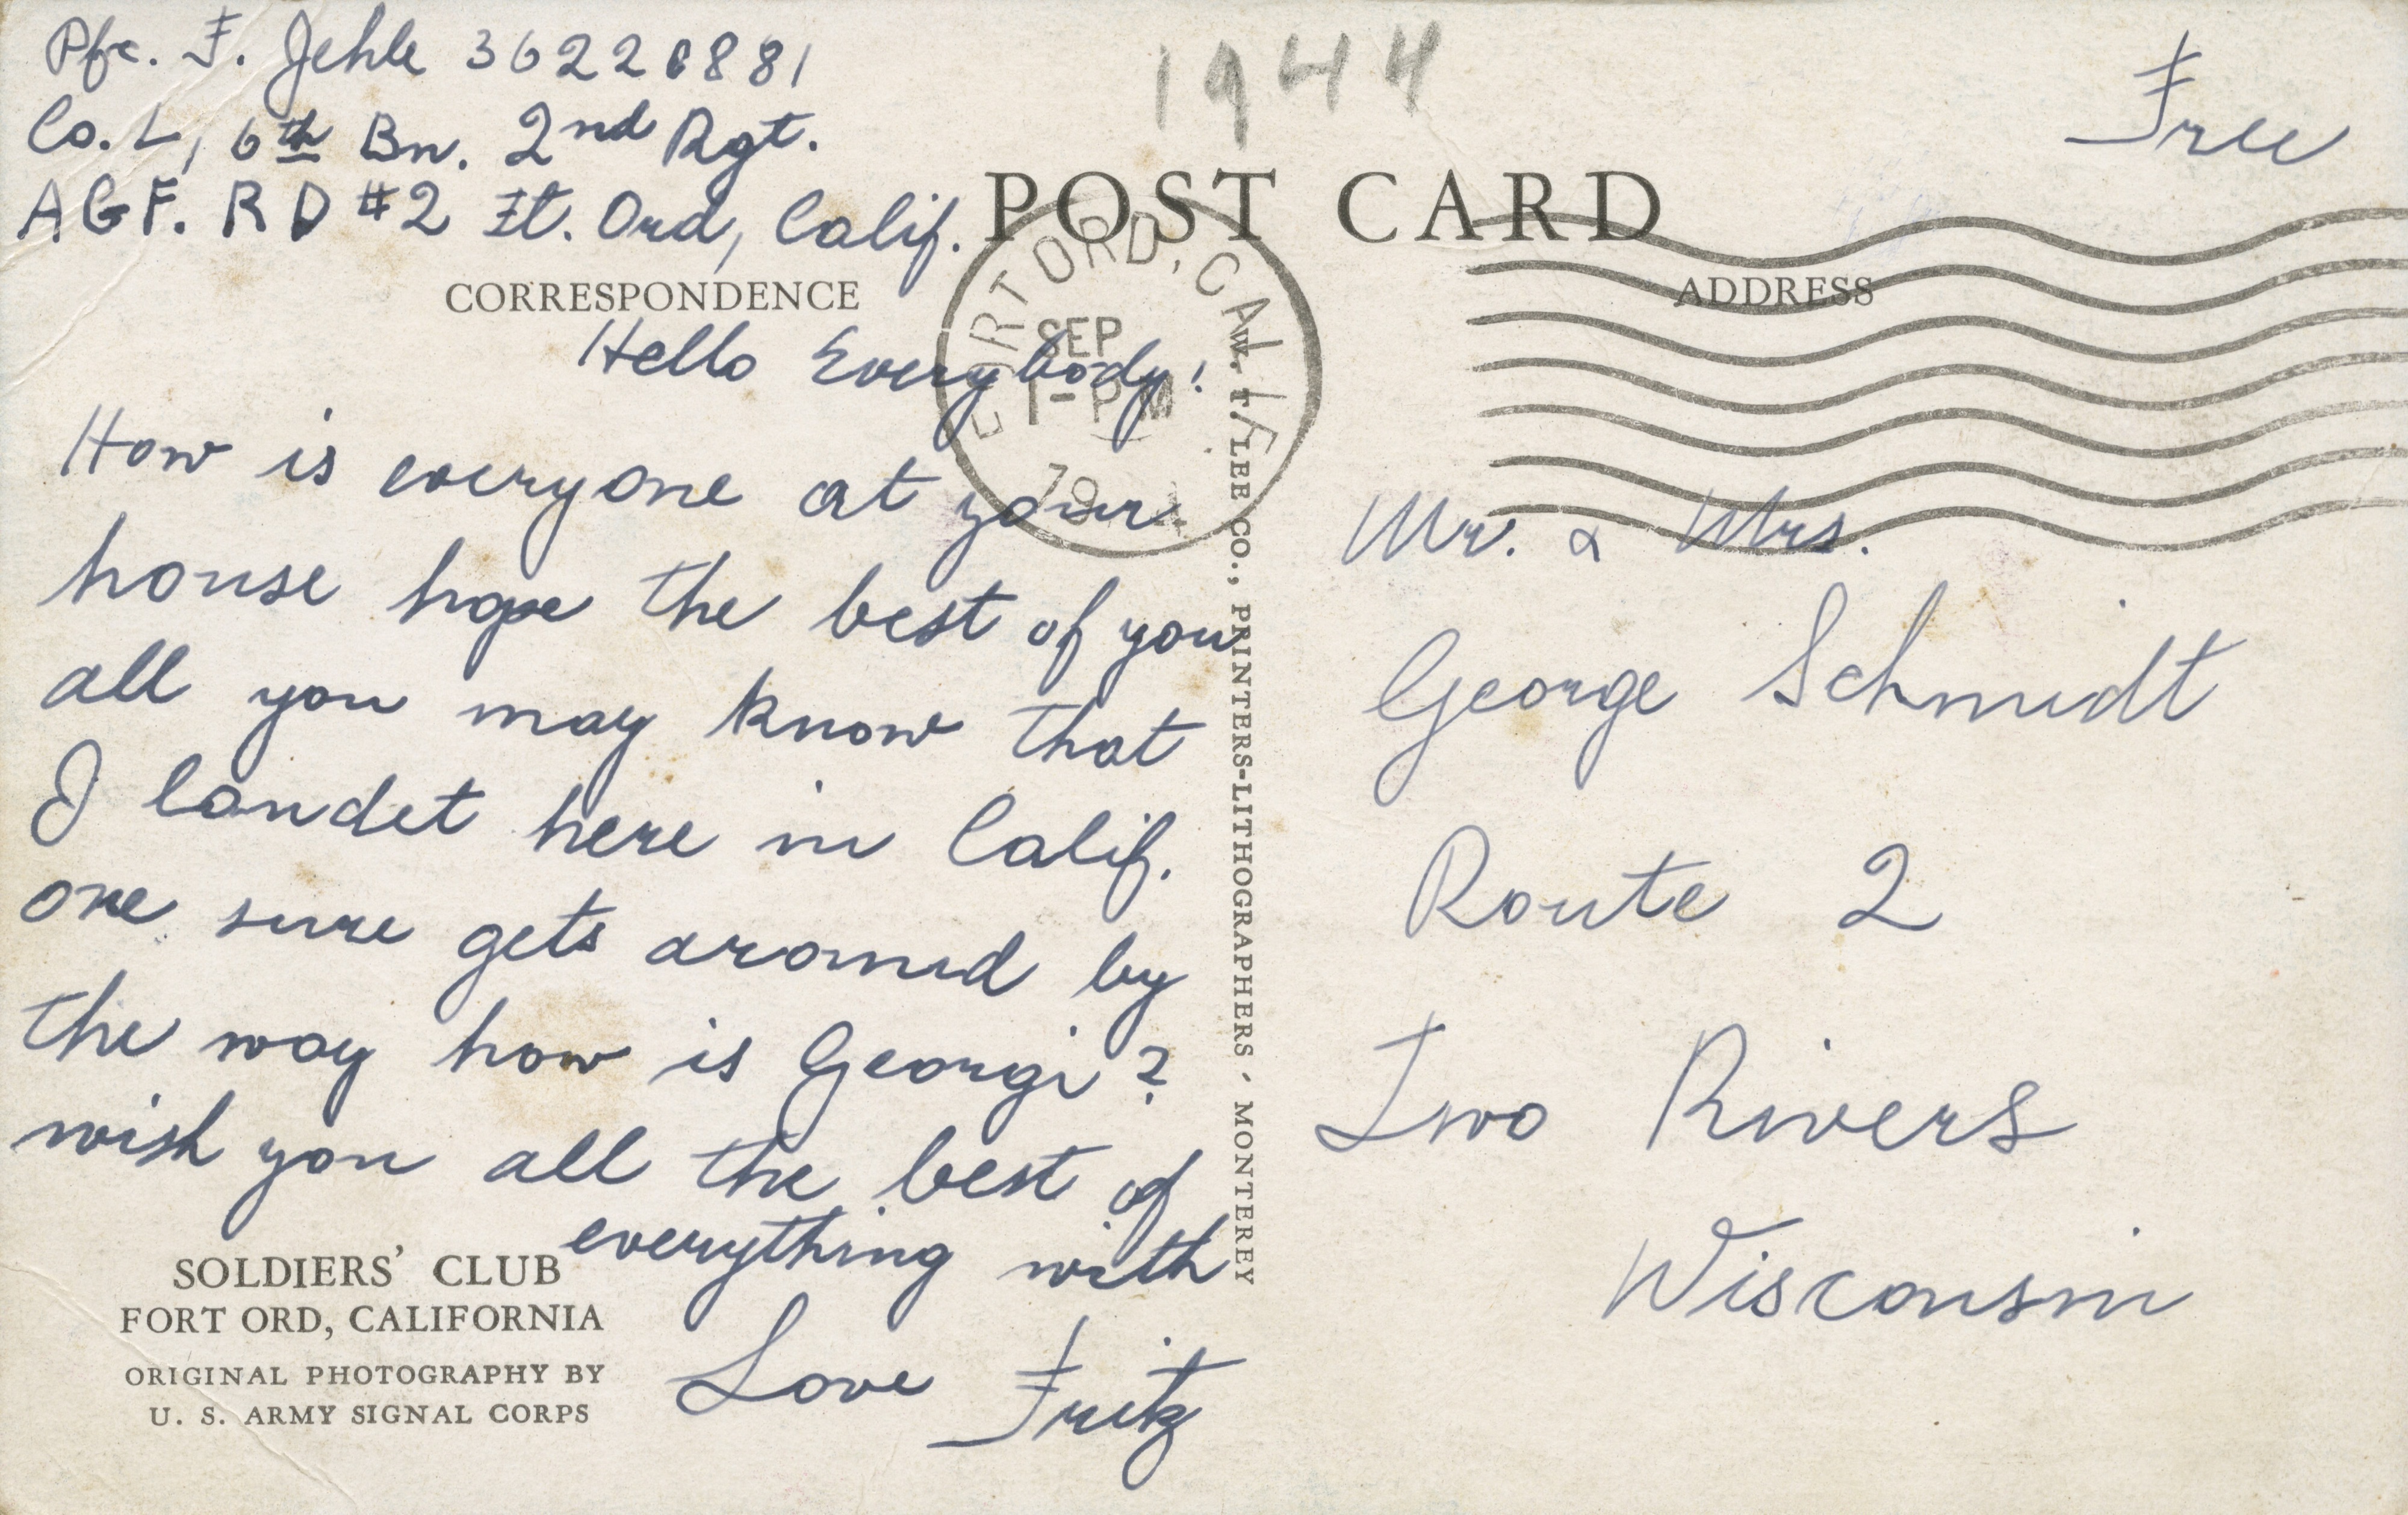 Pfc. F. Jehle 36226881
Co. L, 6th Bn. 2nd Rgt.
AGF. RD #2 Ft. Ord, Calif.
1944
Free
POST CARD
CORRESPONDENCE
ADDRESS
FORT ORD, CALIF.
SEP
1-PM
Hello Everybody!
How is everyone at your
house hope the best of you
all you may know that
I landet here in Calif.
one sure gets around by
the way how is Georgi?
wish you all the best of
everything with
Love Fritz
SOLDIERS' CLUB
FORT ORD, CALIFORNIA
ORIGINAL PHOTOGRAPHY BY
U. S. ARMY SIGNAL CORPS
W. T. LEE CO., PRINTERS-LITHOGRAPHERS - MONTEREY
Mr. & Mrs.
George Schmidt
Route 2
Two Rivers
Wisconsin